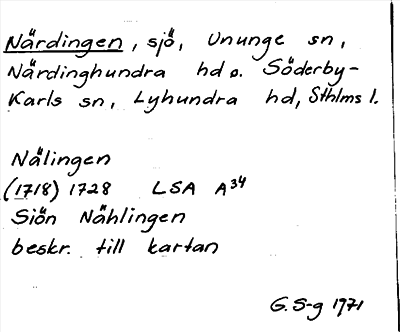 Närdingen, sjö, Ununge sn,
Närdinghundra hd o. Söderby-
Karls sn, Lyhundra hd, Sthlms l.
Nälingen
(1718) 1728 LSA A34
Siön Nählingen
beskr. till kartan
G. S-g 1971